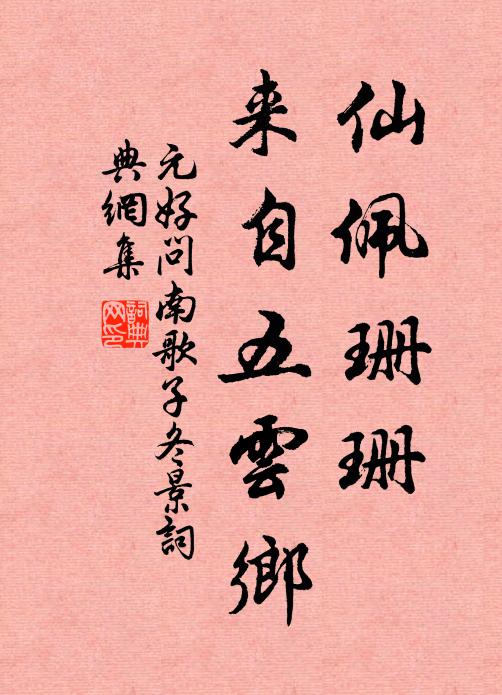 仙佩珊珊
来自五雲鄉
元好问南歌子冬景詞
典網集
詞典网印